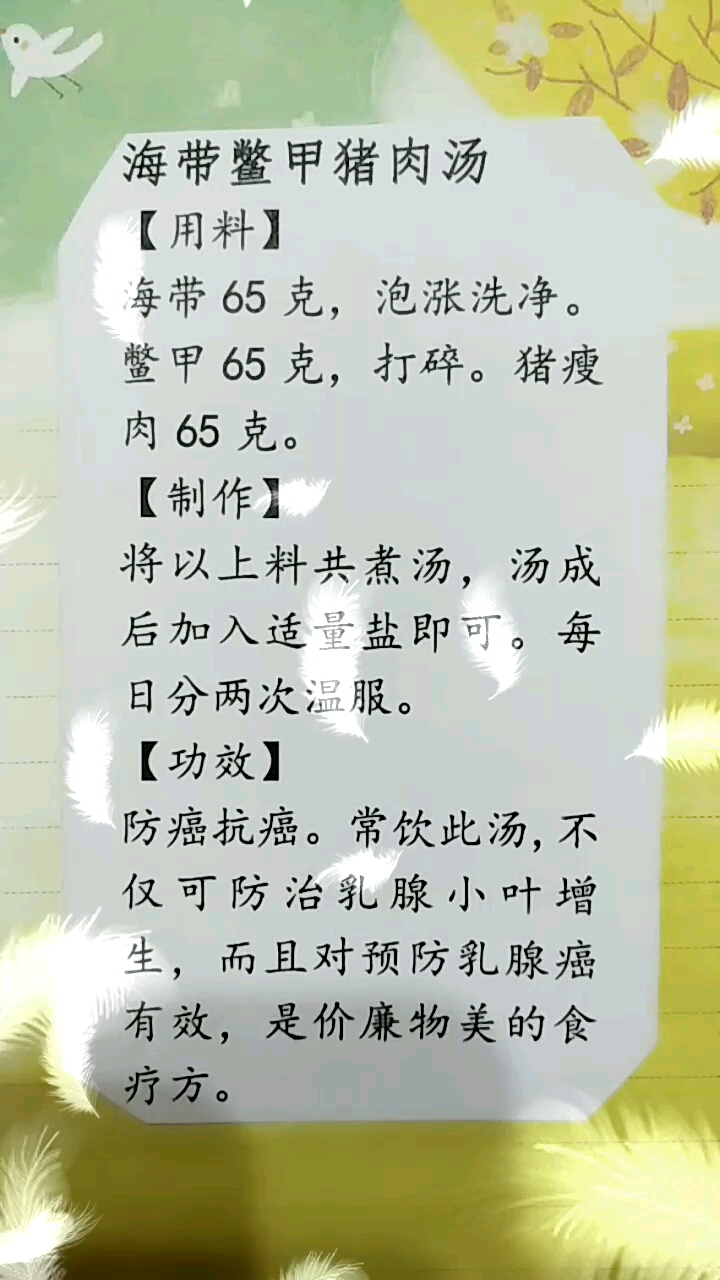 海带鳖甲猪肉汤
【用料】
海带65克，泡涨洗净。
鳖甲65克，打碎。猪瘦
肉65克。
【制作】
将以上料共煮汤，汤成
后加入适量盐即可。每
日分两次温服。
【功效】
防癌抗癌。常饮此汤,不
仅可防治乳腺小叶增
生，而且对预防乳腺癌
有效，是价廉物美的食
疗方。